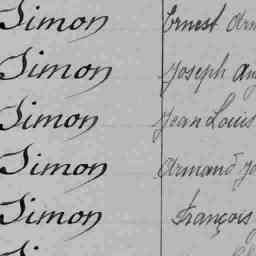 Simon Ernest
Simon Joseph
Simon Jean Louis
Simon Armand
Simon François